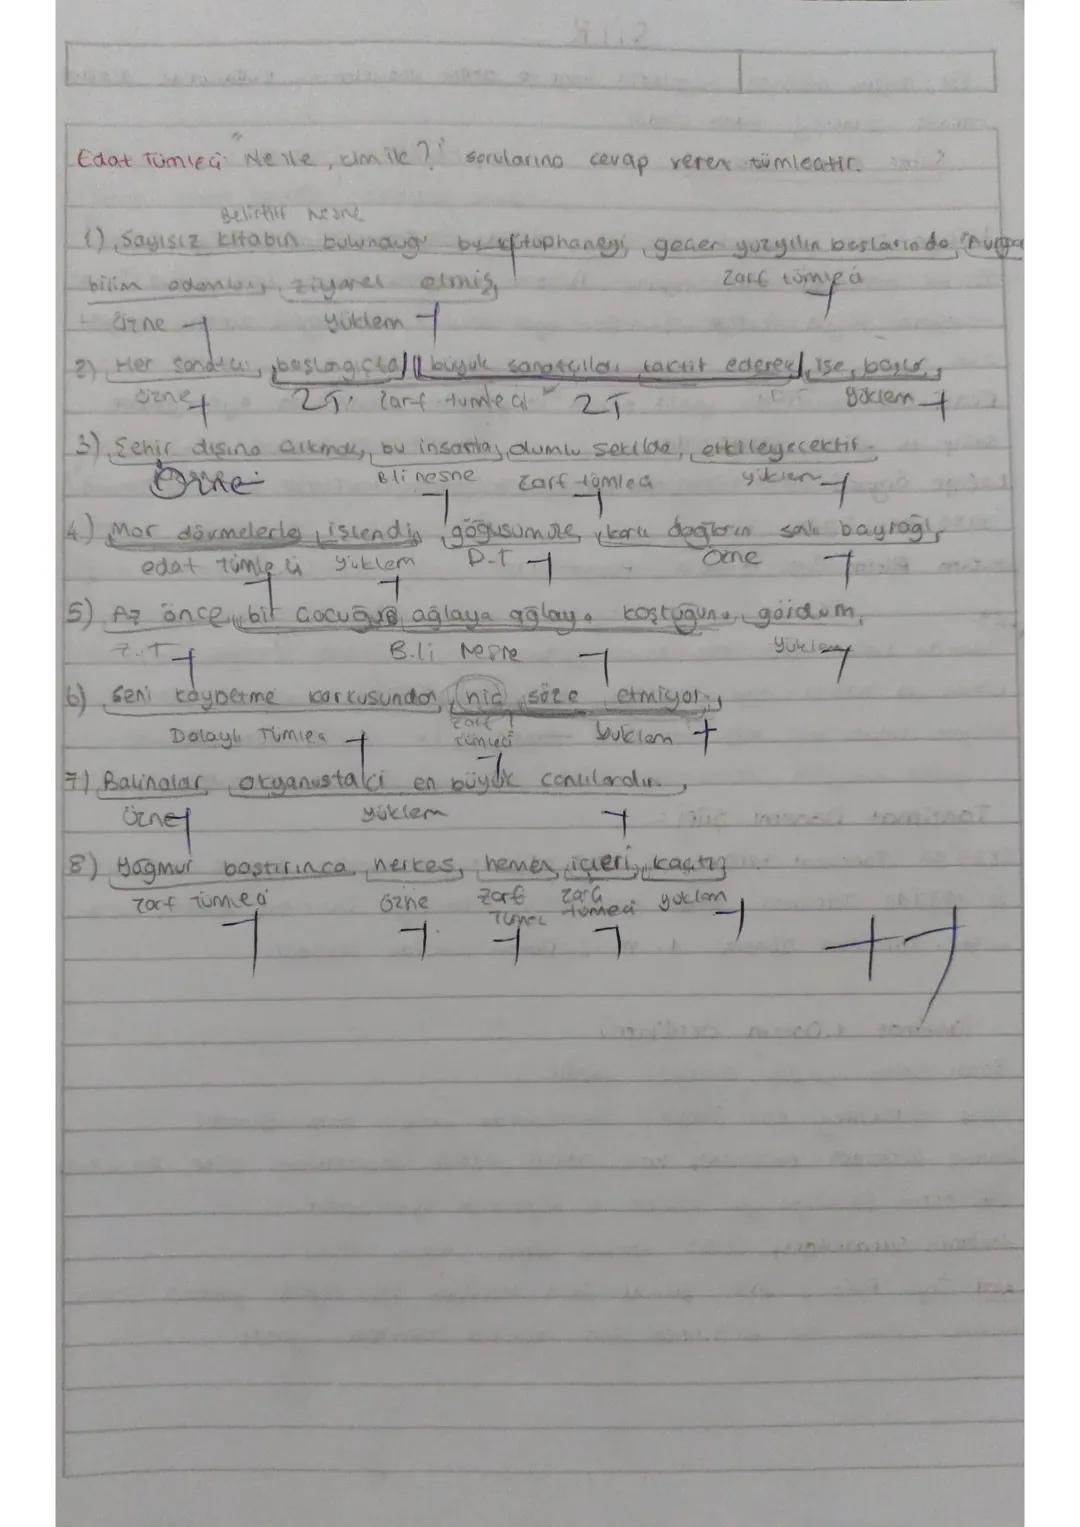 Edat Tümleci: "Ne ile, kim ile?" sorularına cevap veren tümleçtir.
Belirtili Nesne
1) Sayısız kitabın bulunduğu bu kütüphaneyi, geçen yüzyılın başlarında, Avrupa
zarf tümleci
bilim adamları, ziyaret etmiş,
özne yüklem
2) Her sanatçı, başlangıçta büyük sanatçıları taktit ederek işe başlar,
özne ZT. zarf tümleci ZT yüklem
3) Şehir dışına çıkmak, bu insanları, olumlu şekilde, etkileyecektir.
Özne B.li nesne zarf tümleci yüklem
4) Mor dövmelerle, işlendin, göğüsümüze, kara dağların salı bayrağı,
edat tümleci yüklem D.T özne
5) Az önce, bir çocuğun ağlaya ağlaya koştuğunu, gördüm,
Z.T B.li Nesne yüklem
6) Seni kaybetme korkusundan, hiç söze etmiyor,
Dolaylı Tümleç zarf tümleci yüklem
7) Balinalar, okyanustaki en büyük canlılardır,
özne yüklem
8) Yağmur bastırınca, herkes, hemen, içeri, kaçtı,
zarf tümleci özne zarf tümleci zarf tümleci yüklem